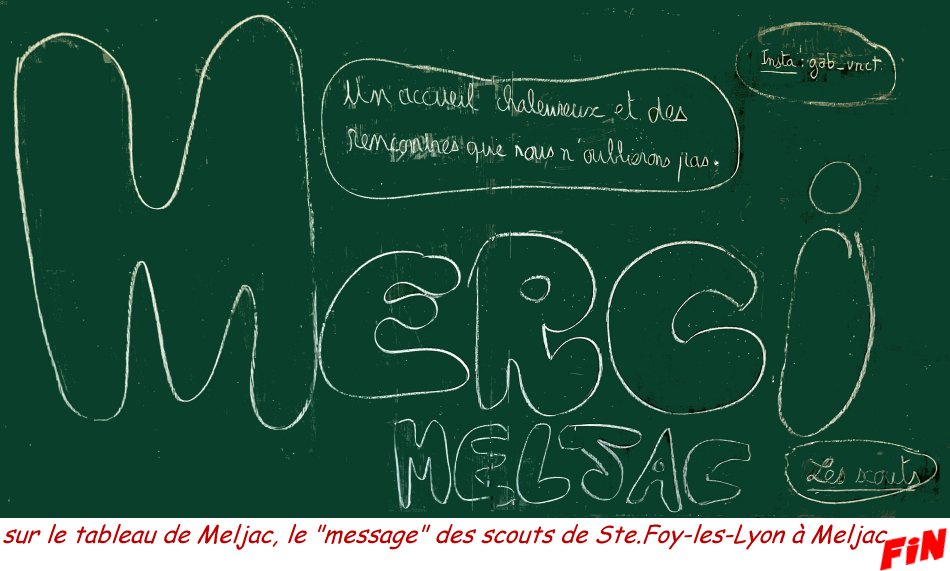 Insta : gab_vnct
Un accueil chaleureux et des
rencontres que nous n'oublierons pas.
MERCi
MELJAC
Les scouts
sur le tableau de Meljac, le "message" des scouts de Ste.Foy-les-Lyon à Meljac
FiN